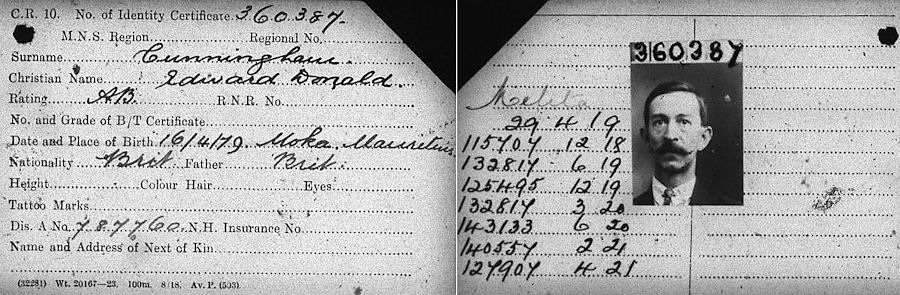 C.R. 10. No. of Identity Certificate. 360387.
M.N.S. Region Regional No.
Surname Cunningham.
Christian Name Edward Donald.
Rating A.B. R.N.R. No.
No. and Grade of B/T Certificate
Date and Place of Birth 16/4/79. Moka, Mauritius.
Nationality Brit Father Brit.
Height Colour Hair Eyes
Tattoo Marks
Dis. A No. 787760. N.H. Insurance No.
Name and Address of Next of Kin
(32281) Wt. 20167—23. 100m. 8/18. Av. P. (503).
360387
Melita
29 4 19
115707 12 18
132817 6 19
125495 12 19
132817 3 20
143133 6 20
140557 2 21
127907 4 21